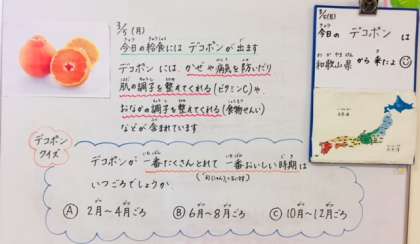 3/5 (月)
今日の給食にはデコポンが出ます
デコポンには、かぜや病気を防いだり
肌の調子を整えてくれる(ビタミンC)や、
おなかの調子を整えてくれる(食物せんい)
などが含まれています
デコポン
クイズ
デコポンが一番たくさんとれて一番おいしい時期は
いつごろでしょうか
Ⓐ 2月~4月ごろ Ⓑ 6月~8月ごろ Ⓒ 10月~12月ごろ
3/5(月)
今日のデコポンは
和歌山県から来たよ